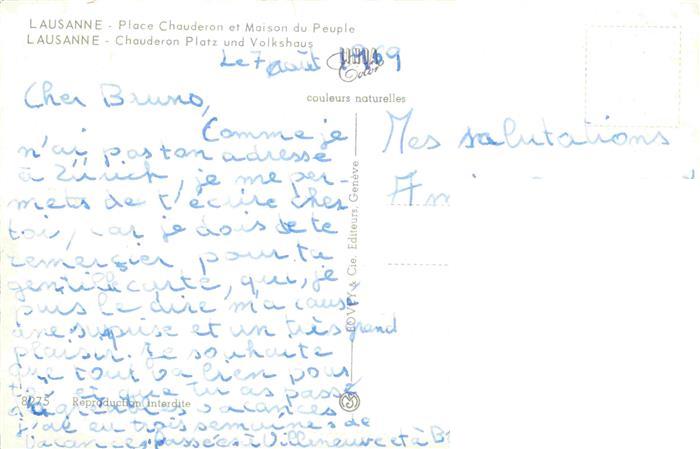 LAUSANNE - Place Chauderon et Maison du Peuple
LAUSANNE - Chauderon Platz und Volkshaus
Le 7 août 1969
Color
couleurs naturelles
Cher Bruno,
Comme je
n'ai pas ton adresse
à Zürich, je me per-
mets de t'écrire chez
toi, car je dois de te
remercier pour ta
gentille carte, qui, je
puis le dire m'a causé
une suprise et un très grand
plaisir. Je souhaite
que tout va bien pour
toi et que tu as passé
vacances
j'ai eu trois semaines de
vacances passées à Villeneuve et à
8275 Reproduction interdite
BOVEY & Cie, Editeurs, Genève
Mes salutations